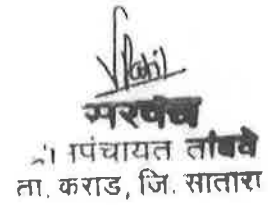 सरपंच
ग्रामपंचायत तांबवे
ता. कराड, जि. सातारा